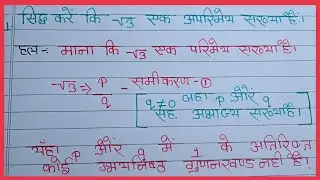 1. सिद्ध करें कि √3 एक अपरिमेय संख्या है।
हल:- माना कि √3 एक परिमेय संख्या है।
√3 ⇒ p/q - समीकरण - ①
[ q ≠ 0 जहाँ p और q सह अभाज्य संख्या है। ]
यहाँ p और q में 1 के अतिरिक्त
कोई उभयनिष्ठ गुणनखण्ड नहीं है।